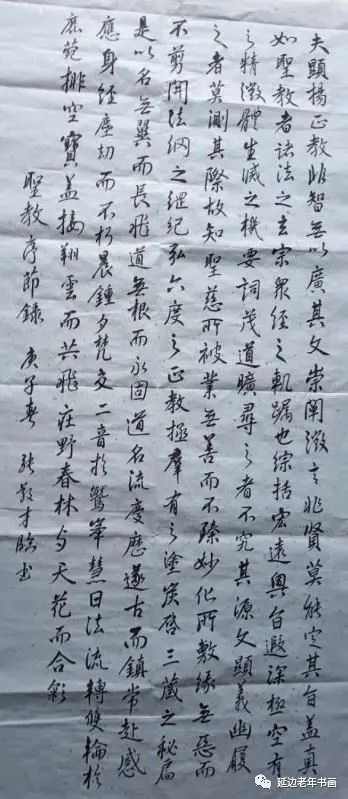 夫顕揚正教非智無以廣其文崇闡微言非賢莫能定其旨盖真
如聖教者諸法之玄宗衆經之軌躅也綜括宏遠奧旨遐深極空有
之精微體生滅之機要詞茂道曠尋之者不究其源文顕義幽履
之者莫測其際故知聖慈所被業無善而不臻妙化所敷緣無惡而
不剪開法網之綱紀弘六度之正教極羣有之塗炭啓三藏之秘扃
是以名無翼而長飛道無根而永固道名流慶歷遂古而鎮常赴感
應身經塵劫而不朽晨鍾夕梵交二音於鷲峯慧日法流轉雙輪於
鹿菀排空寶盖接翔雲而共飛莊野春林与天花而合彩
聖教序節錄 庚子春 張 才臨书
延边老年书画